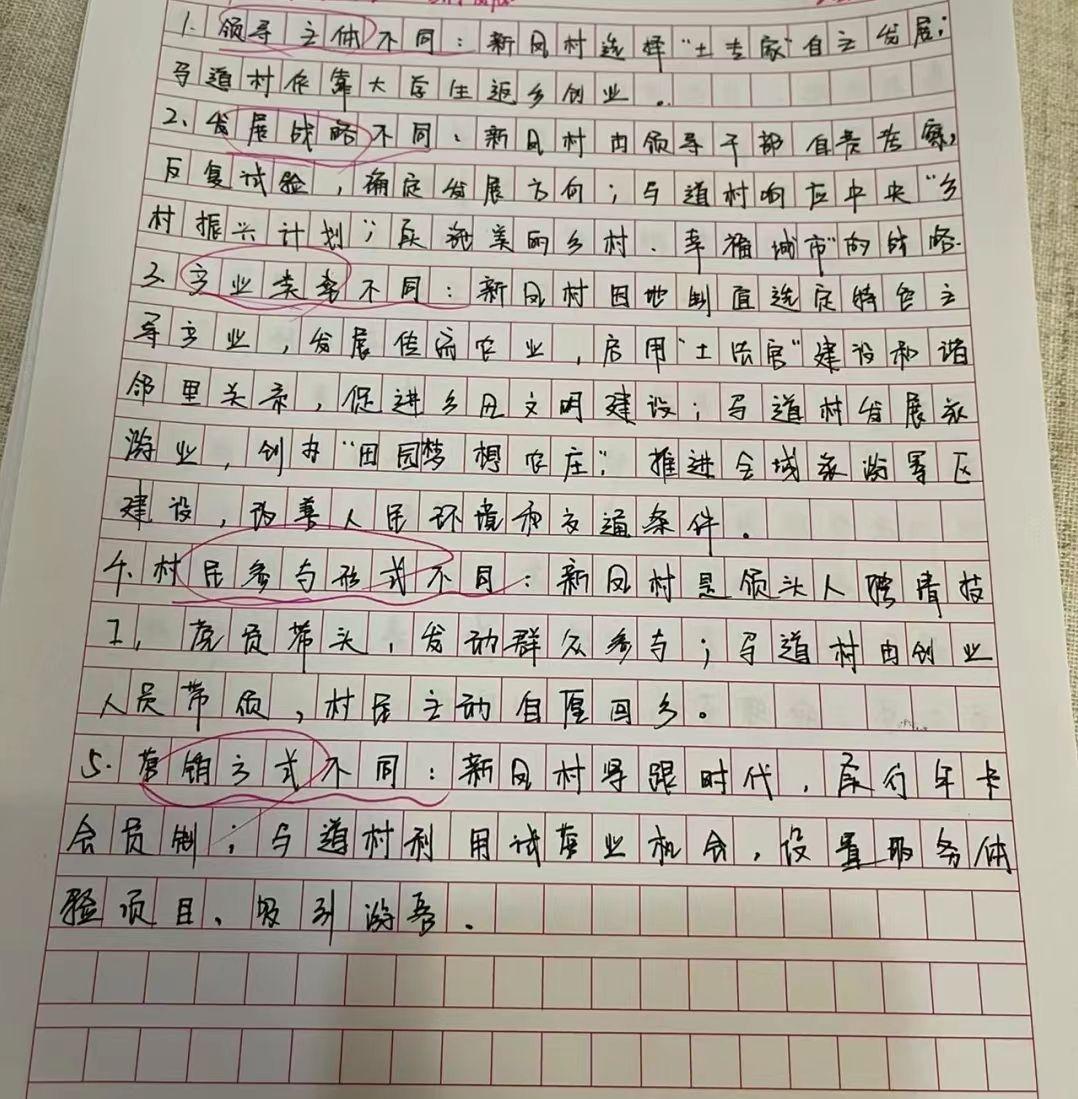 1. 领导主体不同：新风村选择“土专家”自主发展；
马道村依靠大学生返乡创业。
2、发展战略不同、新风村由领导干部自费考察，
反复试验，确定发展方向；马道村响应中央“乡
村振兴计划”；实施美丽乡村、幸福城市”的战略.
3. 产业类型不同：新风村因地制宜选定特色主
导产业，发展传统农业，启用“土法官”建设和谐
邻里关系，促进乡风文明建设；马道村发展旅
游业，创办“田园梦想农庄”，推进全域旅游景区
建设，改善人民环境和交通条件。
4. 村民参与形式不同：新风村是领头人聘请技
工，党员带头，发动群众参与；马道村由创业
人员带领，村民主动自愿回乡。
5. 营销方式不同：新风村紧跟时代，实行年卡
会员制；马道村利用试营业机会，设置服务体
验项目、吸引游客.